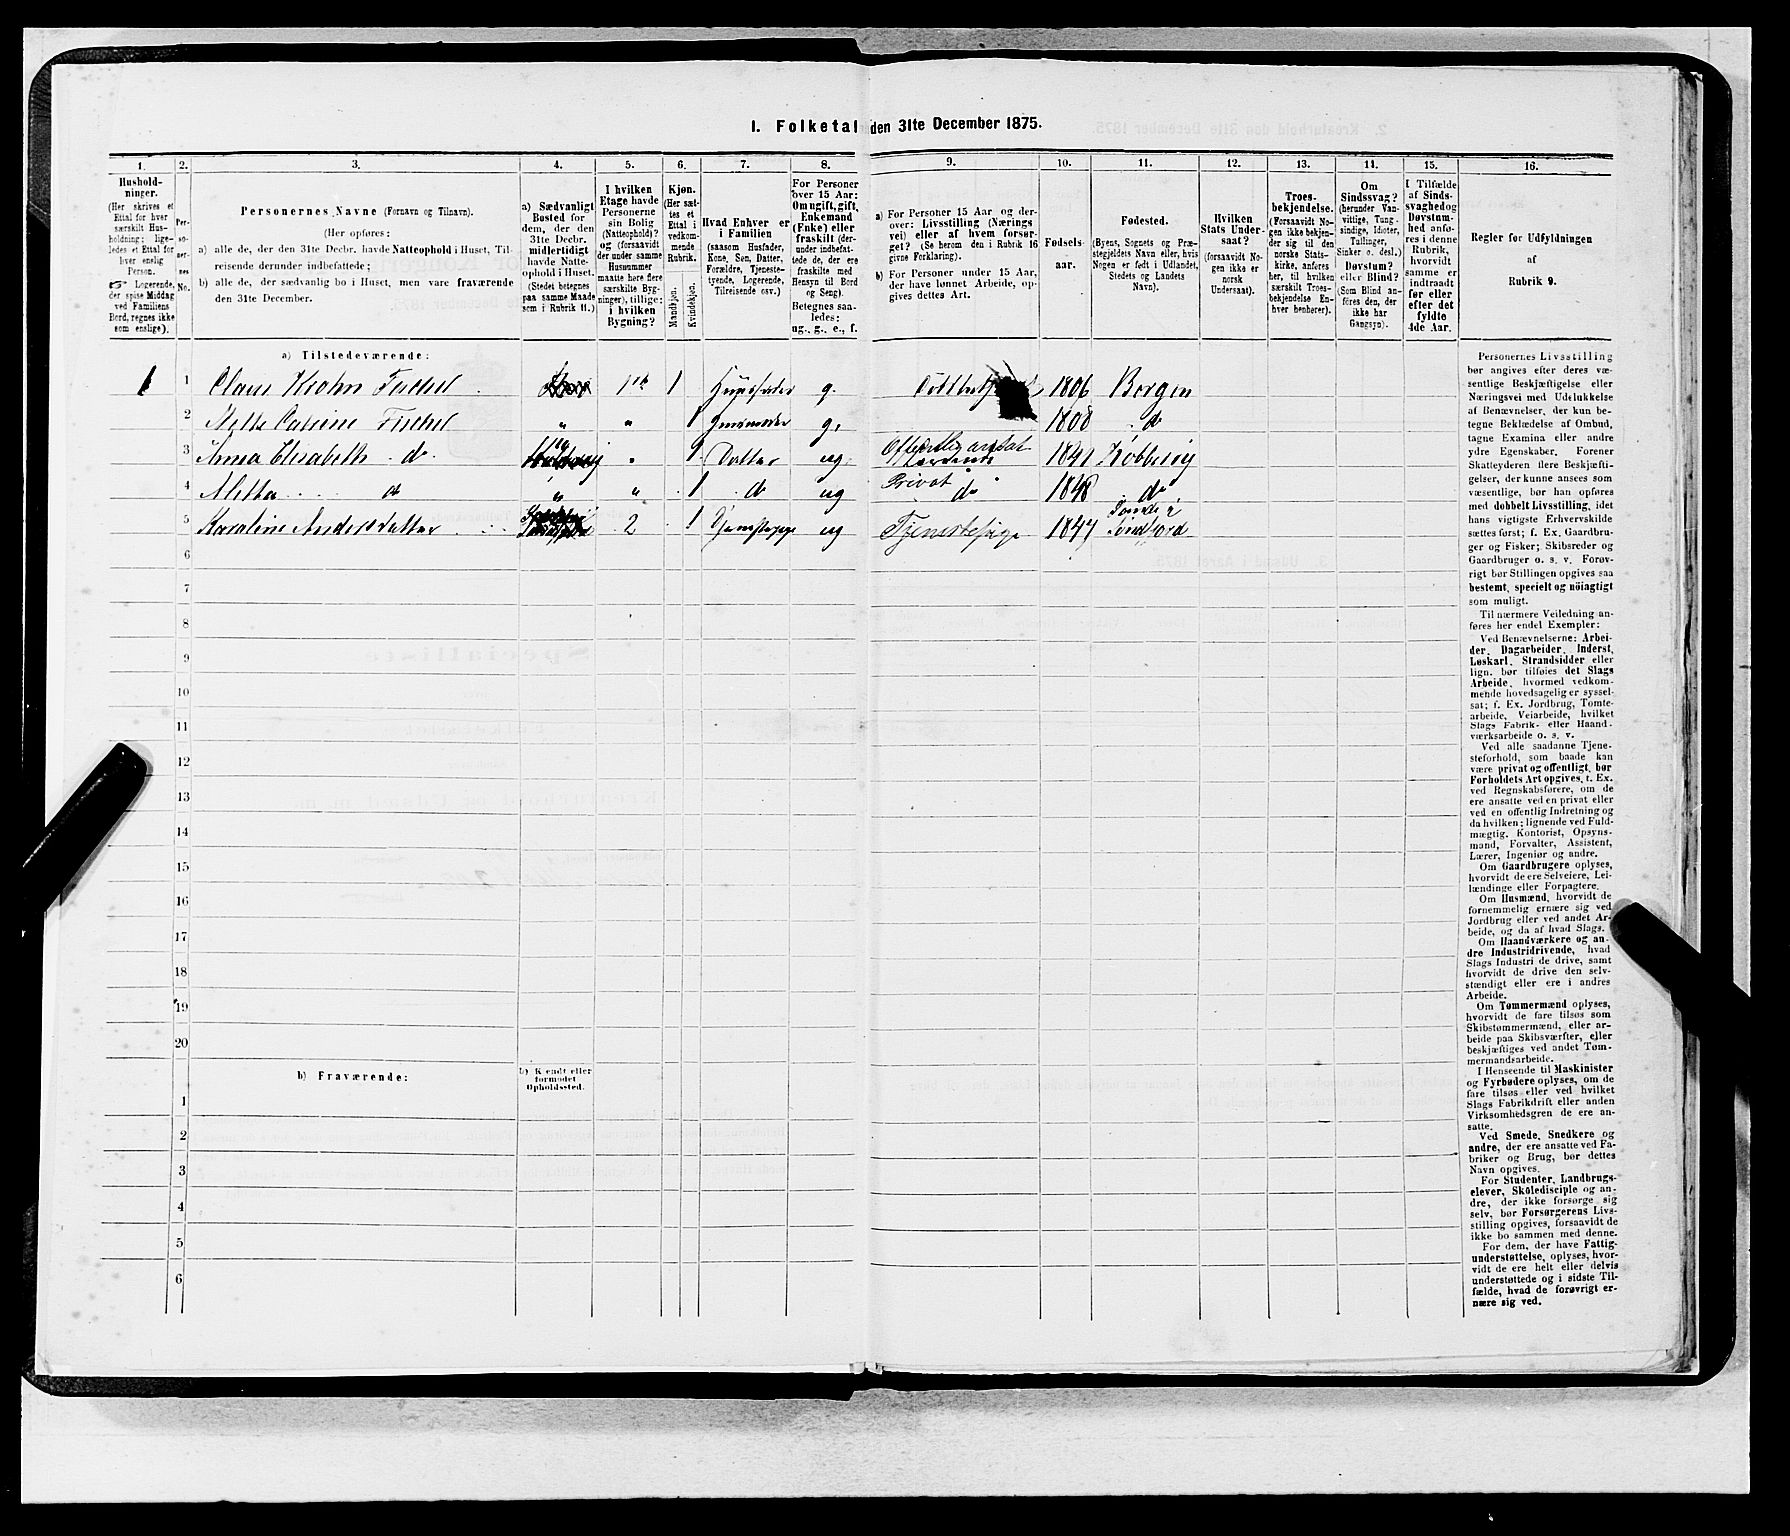 I. Folketal den 31te December 1875.
1.
2.
3.
4.
5.
6.
7.
8.
9.
10.
11.
12.
13.
14.
15.
16.
Hushold-
ninger.
(Her skrives et
Ettal for hver
særskilt Hus-
holdning; lige-
ledes et Ettal for
hver enslig
Person.
☞ Logerende,
der spise Middag
ved Familiens
Bord, regnes ikke
som enslige).
Per-
so-
ner-
nes
No.
Personernes Navne (Fornavn og Tilnavn).
(Her opføres:
a) alle de, der den 31te Decbr. havde Natteophold i Huset, Til-
reisende derunder indbefattede;
b) alle de, der sædvanlig bo i Huset, men vare fraværende
den 31te December.
a) Sædvanligt
Bosted for
dem, der den
31te Decbr.
midlertidigt
havde Natte-
ophold i Huset.
(Stedet betegnes
paa samme Maade
som i Rubrik 11.)
I hvilken
Etage havde
Personerne
sin Bolig
(Natteophold)?
og (forsaavidt
der under samme
Husnummer
maatte høre flere
særskilte Byg-
ninger), tillige:
i hvilken
Bygning?
Kjøn.
(Her sæt-
tes et
Ettal i
vedkom-
mende
Rubrik.
Mandkjøn.
Kvindekjøn.
Hvad Enhver er
i Familien
(saasom Husfader,
Kone, Søn, Datter,
Forældre, Tjeneste-
tyende, Logerende,
Tilreisende osv.)
For Personer
over 15 Aar:
Om ugift, gift,
Enkemand
(Enke) eller
fraskilt (der-
under indbefat-
tede de, der ere
fraskilte med
Hensyn til Bord
og Seng).
Betegnes saa-
ledes:
ug., g., e., f.
a) For Personer 15 Aar og der-
over: Livsstilling (Nærings
vei) eller af hvem forsør-
get? (Se herom den i Rubrik 16
givne Forklaring).
b) For Personer under 15 Aar,
der have lønnet Arbeide, op-
gives dettes Art.
Fødsels-
aar.
Fødested.
(Byens, Sognets og Præ-
stegjeldets Navn eller, hvis
Nogen er født i Udlandet,
Stedets og Landets
Navn).
Hvilken
Stats Under-
saat?
(forsaavidt No-
gen ikke er
norsk
Undersaat).
Troes-
bekjendelse.
(Forsaavidt No-
gen ikke bekjen-
der sig til den
norske Stats-
kirke, anføres
her, til hvilken
særskilt Troes-
bekjendelse En-
hver henhører).
Om
Sindssvag?
(herunder Van-
vittige, Tung-
sindige, Idioter,
Tullinger,
Sinker o. desl.)
Døvstum?
eller Blind?
(Som Blind an-
føres den, der
ikke har
Gangsyn).
I Tilfælde
af Sinds-
svaghed og
Døvstum-
hed anfø-
res i denne
Rubrik,
hvorvidt
samme er
indtraadt
før eller
efter det
fyldte
4de Aar.
Regler for Udfyldningen
af
Rubrik 9.
a) Tilstedeværende:
1 1 Claus Krohn 1 g. 1806 Bergen
2 " " 1 g. 1808 d
3 Anna Elisabeth d " 1 Datter ug 1841
4 d " " 1 d ug Privat d 1848 d
5 Karoline Andersdatter 2 1 ug Tjenestepige 1847
6
7
8
9
10
11
12
13
14
15
16
17
18
19
20
b) Fraværende:
b) Kjendt eller
formodet
Opholdssted.
1
2
3
4
5
6
Personernes Livsstilling
bør angives efter deres væ-
sentlige Beskjæftigelse eller
Næringsvei med Udelukkelse
af Benævnelser, der kun be-
tegne Beklædelse af Ombud,
tagne Examina eller andre
ydre Egenskaber. Forener
Skatteyderen flere Beskjæfti-
gelser, der kunne ansees som
væsentlige, bør han opføres
med dobbelt Livsstilling, idet
hans vigtigste Erhvervskilde
sættes først; f. Ex. Gaardbru-
ger og Fisker; Skibsreder og
Gaardbruger o. s. v. Forøv-
rigt bør Stillingen opgives saa
bestemt, specielt og nöiagtigt
som muligt.
Til nærmere Veiledning an-
føres her endel Exempler:
Ved Benævnelserne: Arbei-
der, Dagarbeider, Inderst,
Løskarl, Strandsidder eller
lign. bør tilføies det Slags
Arbeide, hvormed vedkom-
mende hovedsagelig er syssel-
sat; f. Ex. Jordbrug, Tomte-
arbeide, Veiarbeide, hvilket
Slags Fabrik- eller Haand-
værksarbeide o. s. v.
Ved alle saadanne Tjene-
steforhold, som baade kan
være privat og offentligt, bør
Forholdets Art opgives, t. Ex.
ved Regnskabsførere, om de
ere ansatte ved en privat eller
ved en offentlig Indretning og
da hvilken; lignende ved Fuld-
mægtig, Kontorist, Opsyns-
mand, Forvalter, Assistent,
Lærer, Ingeniør og andre.
Om Gaardbrugere oplyses,
hvorvidt de ere Selveiere, Lei-
lændinge eller Forpagtere.
Om Husmænd, hvorvidt de
fornemmelig ernære sig ved
Jordbrug eller ved andet Ar-
beide, og da af hvad Slags.
Om Haandværkere og an-
dre Industridrivende, hvad
Slags Industri de drive, samt
hvorvidt de drive den selv-
stændigt eller ere i andres
Arbeide.
Om Tømmermænd oplyses,
hvorvidt de fare tilsøs som
Skibstømmermænd, eller ar-
beide paa Skibsværfter, eller
beskjæftiges ved andet Tøm-
mermandsarbeide.
I Henseende til Maskinister
og Fyrbødere oplyses, om de
fare tilsøs eller ved hvilket
Slags Fabrikdrift eller anden
Virksomhedsgren de ere an-
satte.
Ved Smede, Snedkere og
andre, der ere ansatte ved Fa-
briker og Brug, bør dettes
Navn opgives.
For Studenter, Landbrugs-
elever, Skoledisciple og an-
dre, der ikke forsørge sig
selv, bør Forsørgerens Livs-
stilling opgives, forsaavidt de
ikke bo sammen med denne.
For dem, der have Fattig-
understøttelse, oplyses, hvor-
vidt de ere helt eller delvis
understøttede og i sidste Til-
fælde, hvad de forøvrigt er-
nære sig ved.